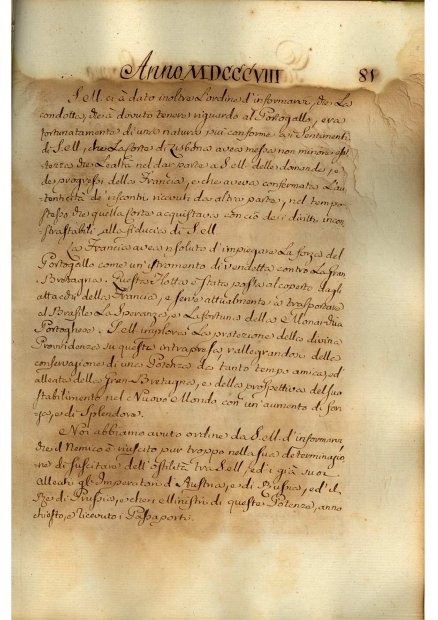 Anno MDCCCVIII 81
S. M. ci à dato inoltre l'ordine d'informarvi, che La
condotta, che à dovuto tenere riguardo al Portogallo, era
fortunatamente di una natura più conforme ai Sentimenti
di S. M., che La Corte di Lisbona aveva messa non minore
che Lealtà nel dar parte a S. M. delle domande, e
de progressi della Francia, e che aveva confermata L'au-
tenticità de' riscontri, ricevuti da altra parte, nel tempo
stesso che quella Corte acquistava con ciò dei diritti incon-
trastabili alla fiducia di S. M.
La Francia aveva risoluto d'impiegare La forza del
Portogallo come un istromento di vendetta contro La Gran
Brettagna. Questa Flotta è stata posta al coperto dagli
attacchi della Francia, e serve attualmente a trasportare
al Brasile La Speranza, e La fortuna della Monarchia
Portoghese. S. M. implora La protezione della divina
Provvidenza su questa intrapresa, rallegrandosi della
conservazione di una Potenza da tanto tempo amica, ed
alleata della Gran Bretagna, e della prospettiva del suo
stabilimento nel Nuovo Mondo con un aumento di for-
za, e di Splendore.
Noi abbiamo avuto ordine da S. M. d'informarvi,
che il Nemico è riuscito pur troppo nella sua determinazio-
ne di suscitare dell'ostilità tra S. M., ed i già suoi
Alleati gl'Imperatori d'Austria, e di Russia, ed il
Rè di Prussia, e che i Ministri di queste Potenze, anno
chiesto, e ricevuto i Passaporti.